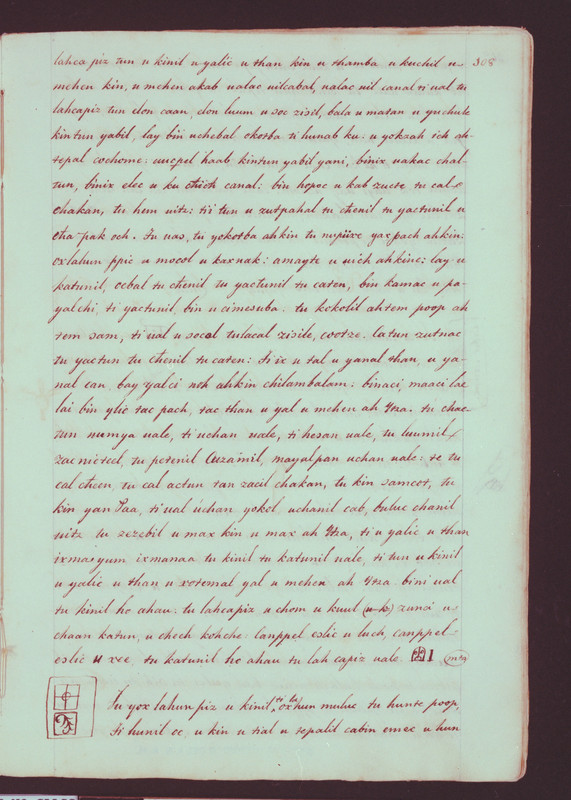 308
lahca piz tun u kinil u yalic u than kin u thamba u kuchil u
mehen kin, u mehen akab ualac uilcabal, ualac uil canal ti ual tu
lahcapiz tun elon caan, elon luum u soc zisil, bala u matan u yuchule
kintun yabil, lay bin uchebal okotba ti hunab ku: u yokzah ich ah
tepal cochome: uucpel haab kintun yabil yani, binix uakac chal
tun, binix elec u ku canal: bin hopoc u kab zucte tu cal
chakan, tu hem uitz: tii tun u zutpahal tu chenil tu yactunil u
cha pak och. Tu uas, tu yokotba ahkin tu yaxpach ahkin:
oxlahun ppic u mocol u kaxnak: amayte u uich ahkinc; lay u
katunil, ocbal tu chenil tu yactunil tu caten, bin kamac u pa
yalchi, ti yactunil, bin u cimesuba: tu kekolil ahtem poop ah
tem sam, ti ual u socol tulacal zisile, cootze. Ca tun zutnac
tu yactun tu chenil tu caten: ti ix u tal u yanal than, u ya
nal can, bay yalci noh ahkin chilambalam: binaci, maaci lae
lai bin ylic tac pach, tac than u yal u mehen ah Ytza. tu chac
tun numya uale, ti uchan uale, ti hesan uale, tu luumil
zac nicteel, tu petenil Cuzamil, mayalpan uchan uale: te tu
cal cheen, tu cal actun tan zacil chakan, tu kin samcot, tu
kin yan Taa, ti ual uchan yokol uchanil cab, buluc chanil
uitz tu zezebil u max kin u max ah Ytza, ti u yalic u than
ixma yum ixmanaa tu kinil tu katunil uale, ti tun u kinil
u yalic u than u xotomal yal u mehen ah Ytza. bini ual
tu kinil ho ahau: tu lahcapiz u chom u kuul (u k) zunci u
chaan katun, u chech kohche: canppel eslic u luch, canppel
eslic u xec, tu katunil ho ahau tu lah capiz uale. 1
Tu yox lahun piz u kinil, ti tu oxhun muluc tu hunte poop,
ti hunil oc, u kin u tial u tepalil cabin emec u hun